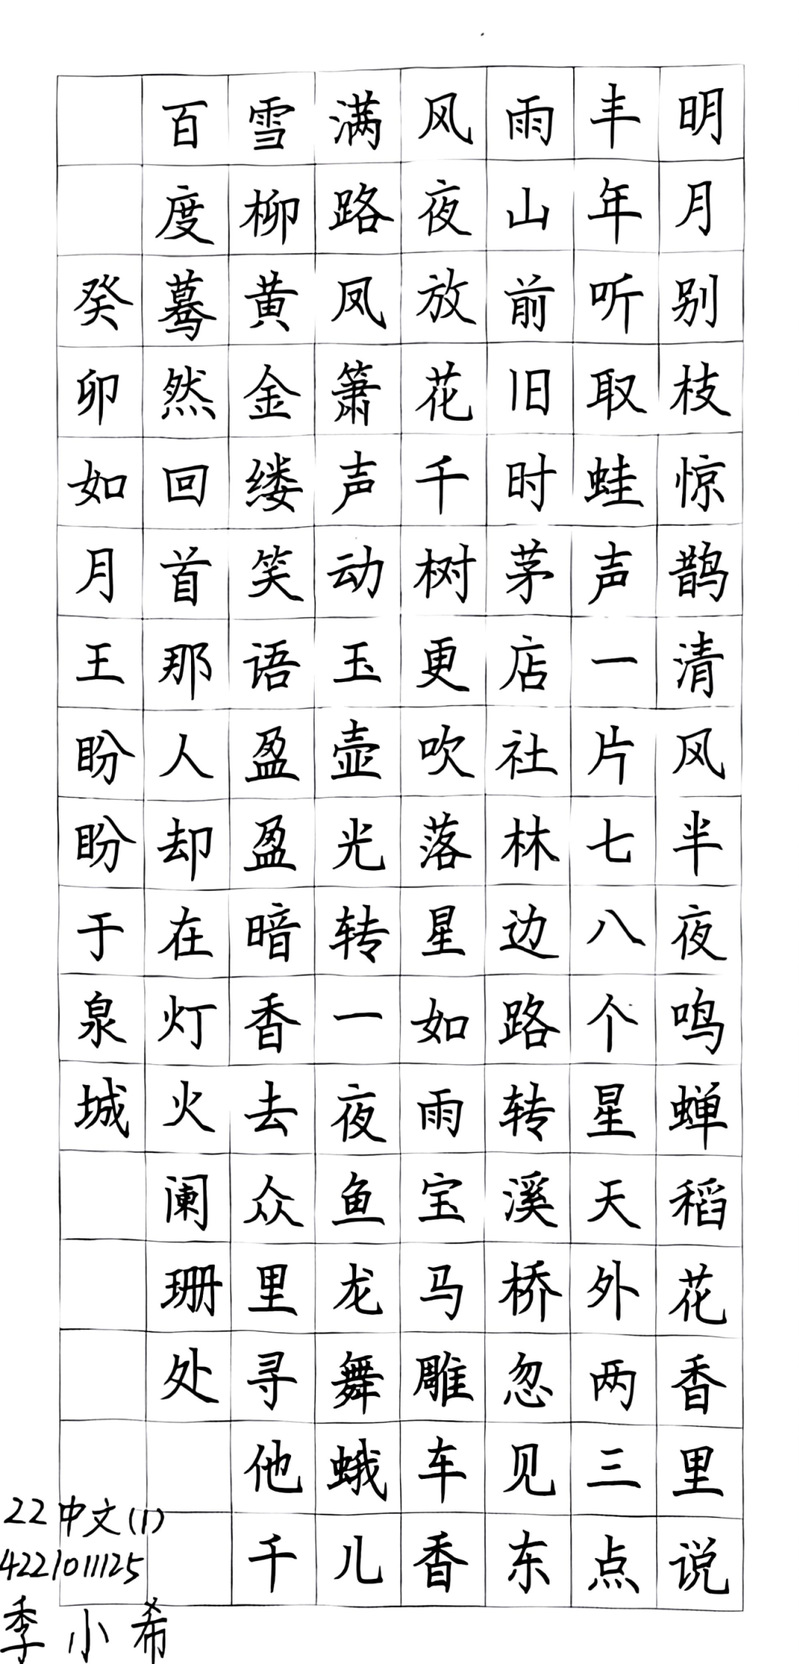 明月别枝惊鹊清风半夜鸣蝉稻花香里说
丰年听取蛙声一片七八个星天外两三点
雨山前旧时茅店社林边路转溪桥忽见东
风夜放花千树更吹落星如雨宝马雕车香
满路凤箫声动玉壶光转一夜鱼龙舞蛾儿
雪柳黄金缕笑语盈盈暗香去众里寻他千
百度蓦然回首那人却在灯火阑珊处
癸卯如月王盼盼于泉城
22中文(1)
4221011125
季小希